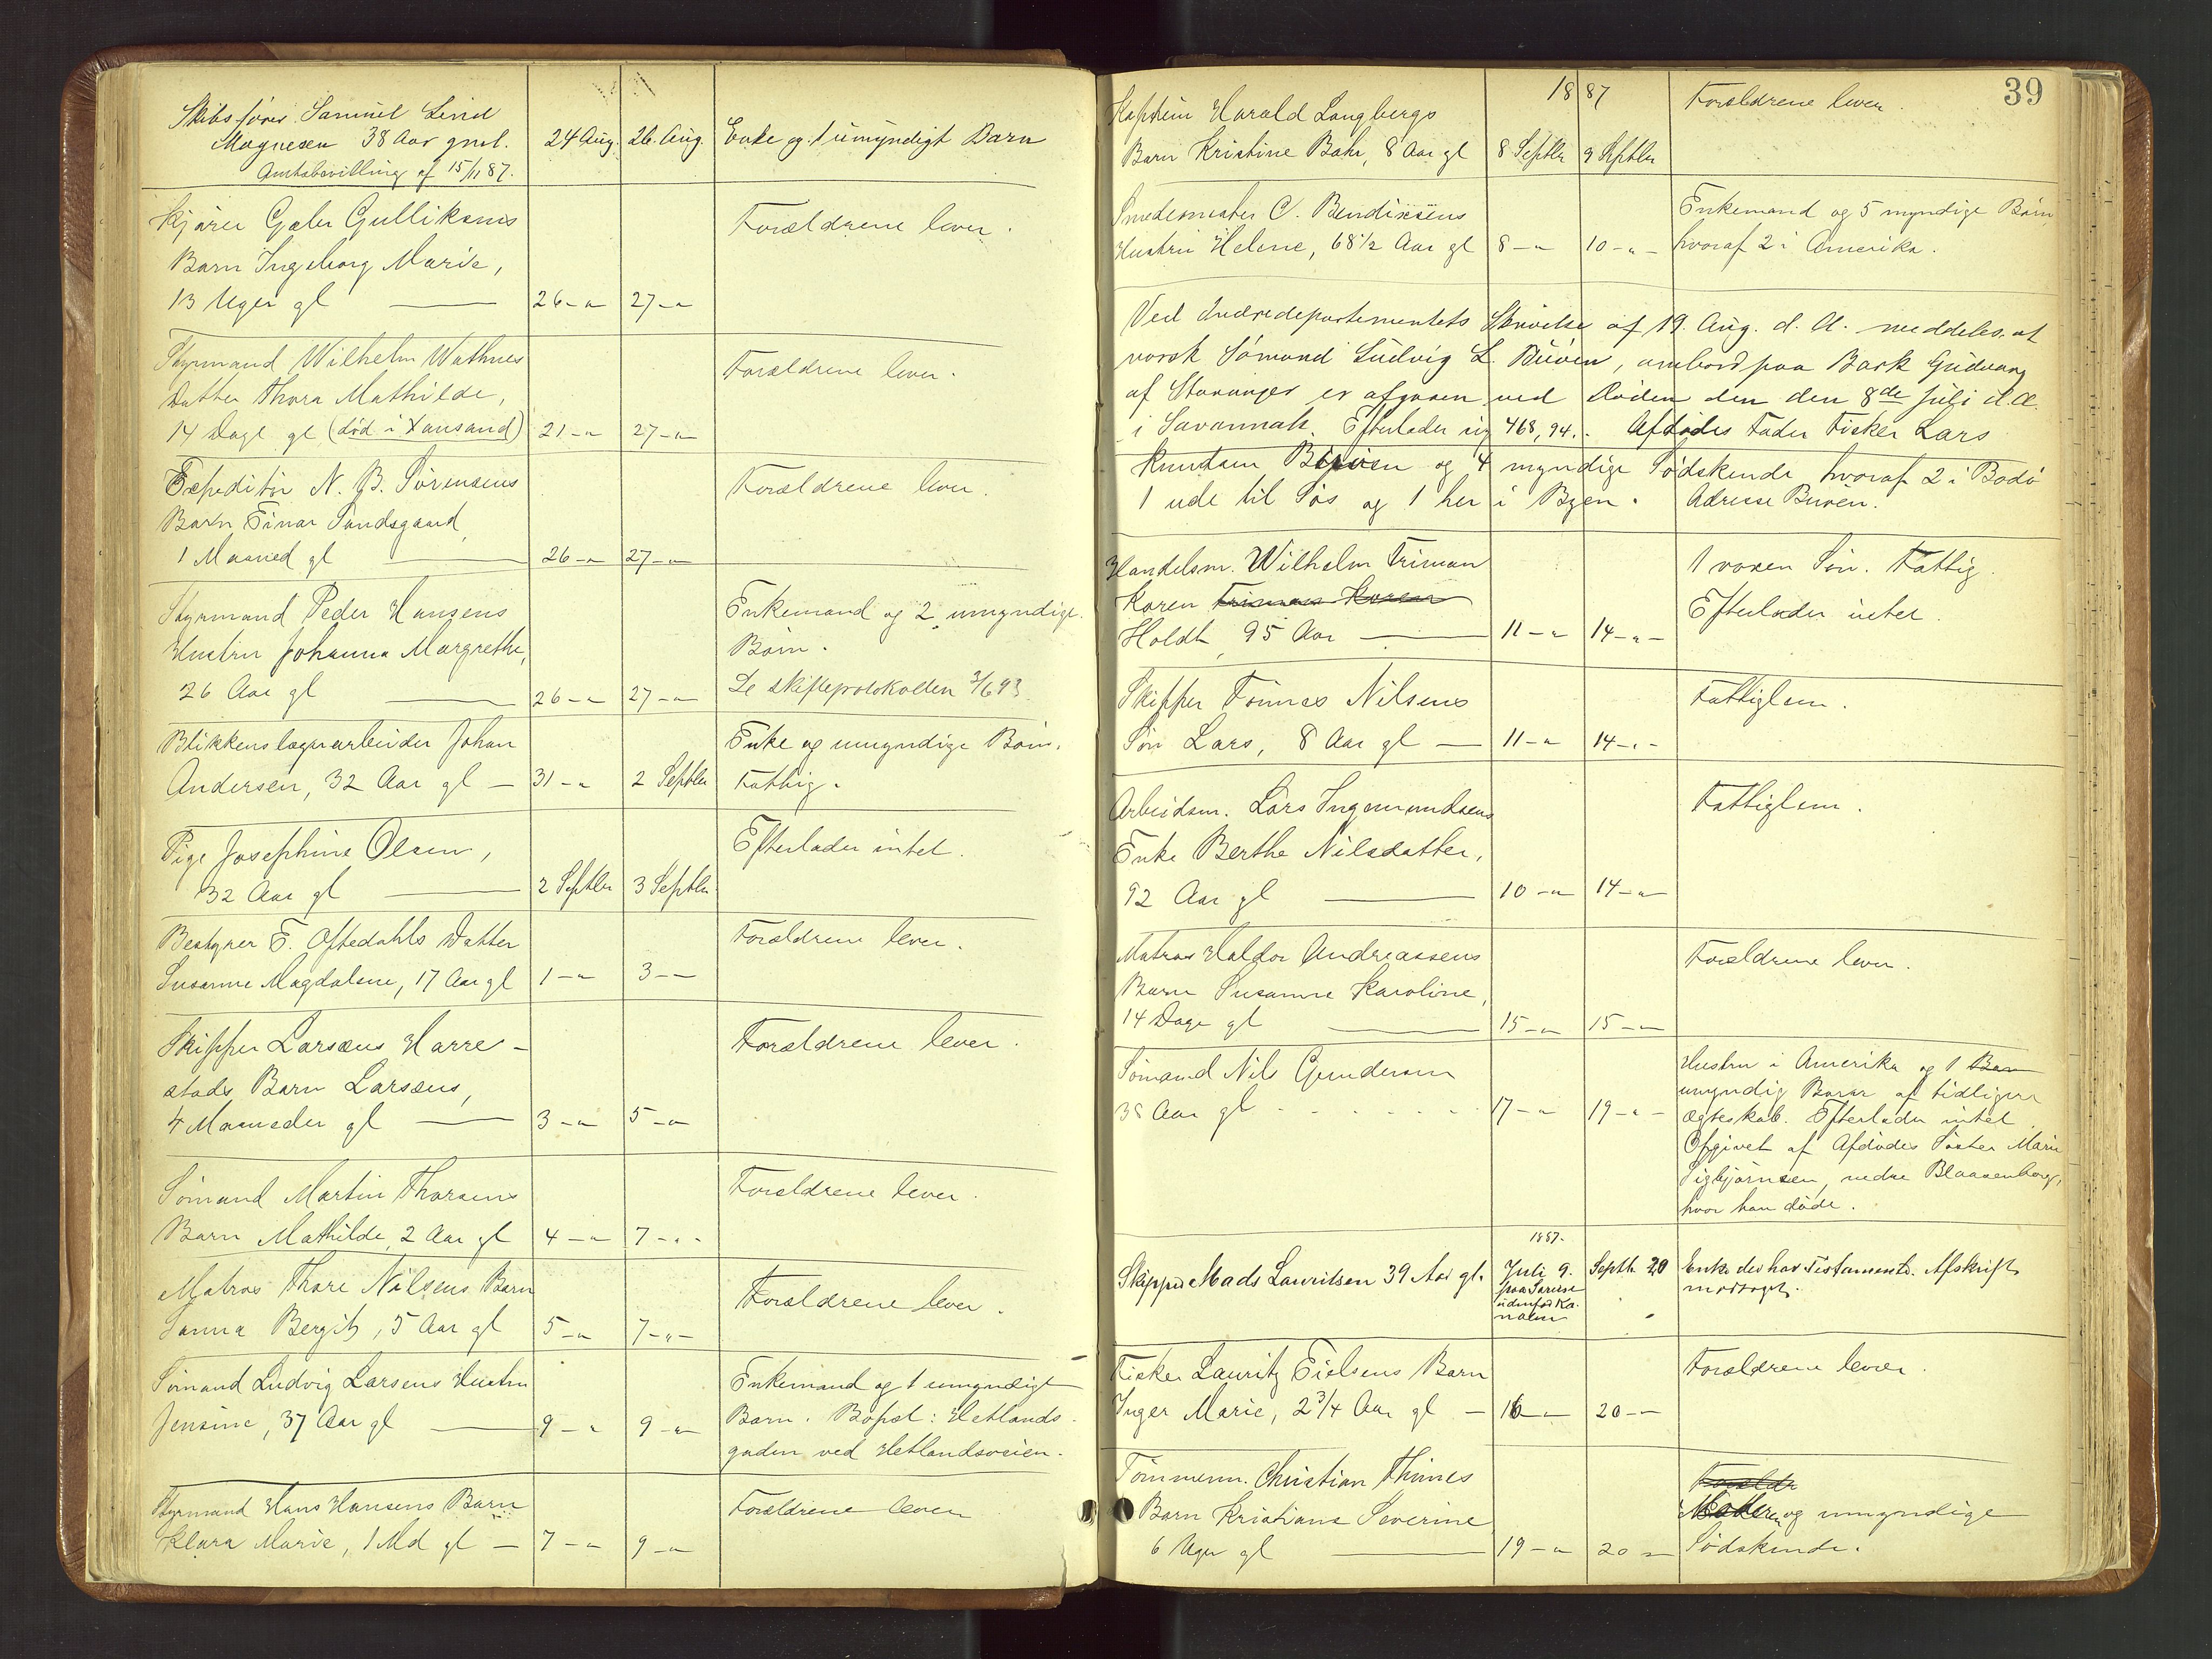 Skibsfører Samuel Lind
Magnesen 38 Aar gml. 24 Aug. 26. Aug. Enke og 1 umyndigt Barn
Amtsbevilling af 15/11 87.
Kjører Gabr Gulliksens Forældrene lever.
Barn Ingeborg Marie,
13 Uger gl — 26 -"- 27 -"-
Styrmand Wilhelm Wathnes Forældrene lever.
Datter Thora Mathilde,
14 Dage gl (død i Xansand) 21 -"- 27 -"-
Expeditør N. B. Sørensens Forældrene lever.
Barn Einar Sandsgaard,
1 Maaned gl — 26 -"- 27 -"-
Styrmand Peder Hansens Enkemand og 2 umyndige
Hustru Johanna Margrethe, Børn.
26 Aar gl — 26 -"- 27 -"- Se skifteprotokollen 3/6 93.
Blikkenslagerarbeider Johan Enke og umyndige Børn.
Andersen, 32 Aar gl — 31 -"- 2 Septbr Fattig.
Pige Josephine Olsen, Efterlader intet.
32 Aar gl — 2 Septbr 3 Septbr
Bestyrer E. Oftedahls Datter Forældrene lever.
Susanne Magdalene, 17 Aar gl 1 -"- 3 -"-
Skipper Larsens Harre- Forældrene lever.
stads Barn Larsens,
4 Maaneder gl — 3 -"- 5 -"-
Sømand Martin Thorsens Forældrene lever.
Barn Mathilde, 2 Aar gl 4 -"- 7 -"-
Matros Thore Nilsens Barn Forældrene lever.
Sanna Bergit, 5 Aar gl 5 -"- 7 -"-
Sømand Ludvig Larsens Hustru Enkemand og 1 umyndigt
Jensine, 37 Aar gl — 9 -"- 9 -"- Barn. Bopæl: Hetlands-
gaden ved Hetlandsveien.
Styrmand Hans Hansens Barn Forældrene lever
Klara Marie, 1 Md gl — 7 -"- 9 -"-
39
Kaptein Harald Langbergs 1887 Forældrene lever.
Barn Kristine Bahr, 8 Aar gl 8 Septbr 9 Septbr
Smedemester C. Bendixsens Enkemand og 5 myndige Børn
Hustru Helene, 68 1/2 Aar gl 8 -"- 10 -"- hvoraf 2 i Amerika.
Ved Indredepartementets Skrivelse af 19. Aug. d. A. meddeles, at
norsk Sømand Ludvig L. Buøen, ombord paa Bark Gudvang
af Stavanger er afgaaen ved Døden den den 8de Juli d. A.
i Savannah. Efterlader sig 468,94. Afdødes Fader Fisker Lars
Knutsen Buøen og 4 myndige Sødskende hvoraf 2 i Bodø
1 ude til Søs og 1 her i Byen. Adresse Buøen.
Handelsm. Wilhelm Friman 1 voxen Søn. Fattig.
Koren Friman Koren Efterlader intet.
Holdt, 95 Aar — 11 -"- 14 -"-
Skipper Tønnes Nilsens Fattiglem.
Søn Lars, 8 Aar gl — 11 -"- 14 -"-
Arbeidsm. Lars Ingemundsens Fattiglem.
Enke Berthe Nilsdatter,
92 Aar gl — 10 -"- 14 -"-
Matros Haldor Andreassens Forældrene lever.
Barn Susanne Karoline,
14 Dage gl — 15 -"- 15 -"-
Sømand Nils Gundersen Hustru i Amerika og 1 Barn
38 Aar gl 17 -"- 19 -"- umyndig Barn af tidligere
Ægteskab. Efterlader intet.
Opgivet af Afdødes Søster Marie
Sigbjørnsen, nedre Blaasenborg,
hvor han døde.
1887.
Skipper Mads Lauritsen 39 Aar gl. Juli 9. Septb. 20 Enke der har Testamente. Afskrift
paa Sørejse modtaget.
udenfor Ka-
nalen
Fisker Lauritz Eielsens Barn Forældrene lever.
Inger Marie, 2 3/4 Aar gl — 16 -"- 20 -"-
Tømmerm. Christian Thimes Forældr
Barn Kristiane Severine Moderen og umyndige
6 Uger gl — 19 -"- 20 -"- Sødskende.